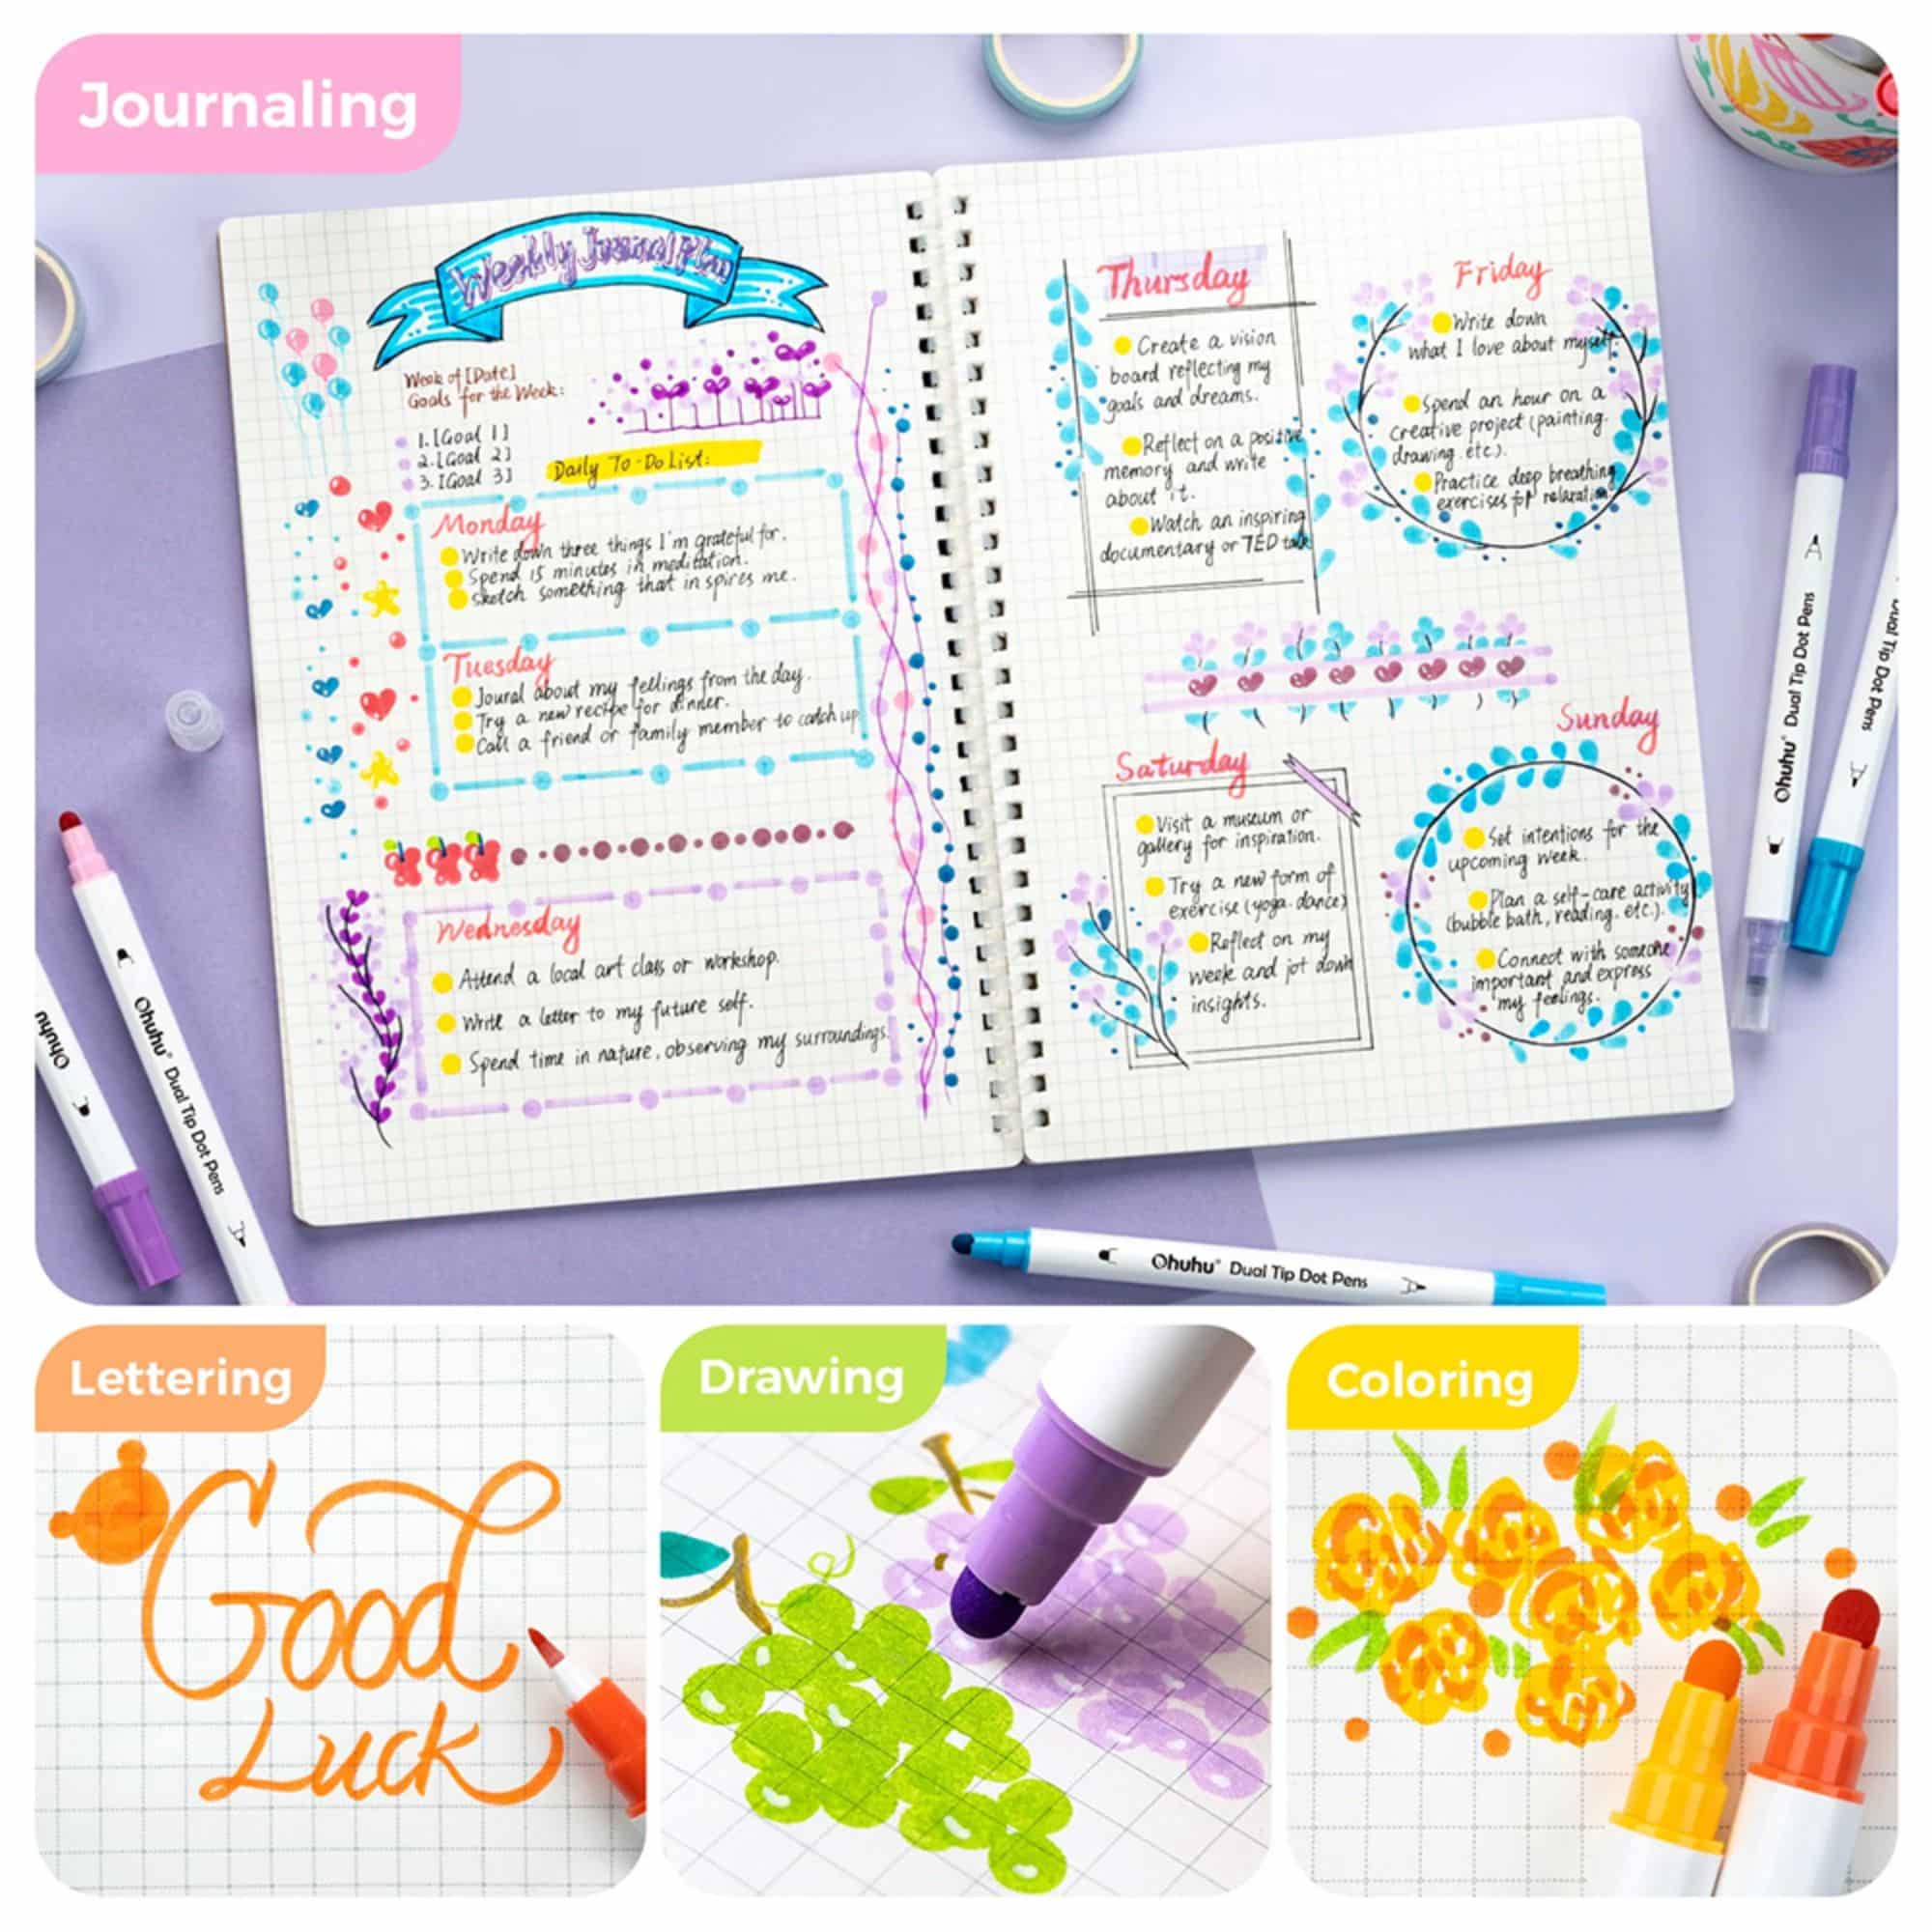 Journaling
Weekly Journal Plan
Week of [Date]
Goals for the Week:
1. [Goal 1]
2. [Goal 2]
3. [Goal 3]
Daily To-Do List:
Monday
Write down three things I'm grateful for.
Spend 15 minutes in meditation.
Sketch something that in spires me.
Tuesday
Joural about my feelings from the day.
Try a new recipe for dinner.
Call a friend or family member to catch up
Wednesday
Attend a local art class or workshop.
Write a letter to my future self.
Spend time in nature, observing my surroundings.
Thursday
Create a vision
board reflecting my
goals and dreams.
Reflect on a positive
memory and write
about it.
Watch an inspiring
documentary or TED talk
Friday
Write down
what I love about myself.
Spend an hour on a
creative project (painting.
drawing. etc.).
Practice deep breathing
exercises for relaxation
Saturday
Visit a museum or
gallery for inspiration.
Try a new form of
exercise (yoga. dance)
Reflect on my
week and jot down
insights.
Sunday
Set intentions for the
upcoming week.
Plan a self-care activity
(bubble bath, reading. etc.).
Connect with someone
important and express
my feelings.
Ohuhu
Ohuhu® Dual Tip Dot Pens
Ohuhu® Dual Tip Dot Pens
Dual Tip Dot Pens
Ohuhu® Dual Tip Dot Pens
Lettering
Good
Luck
Drawing
Coloring